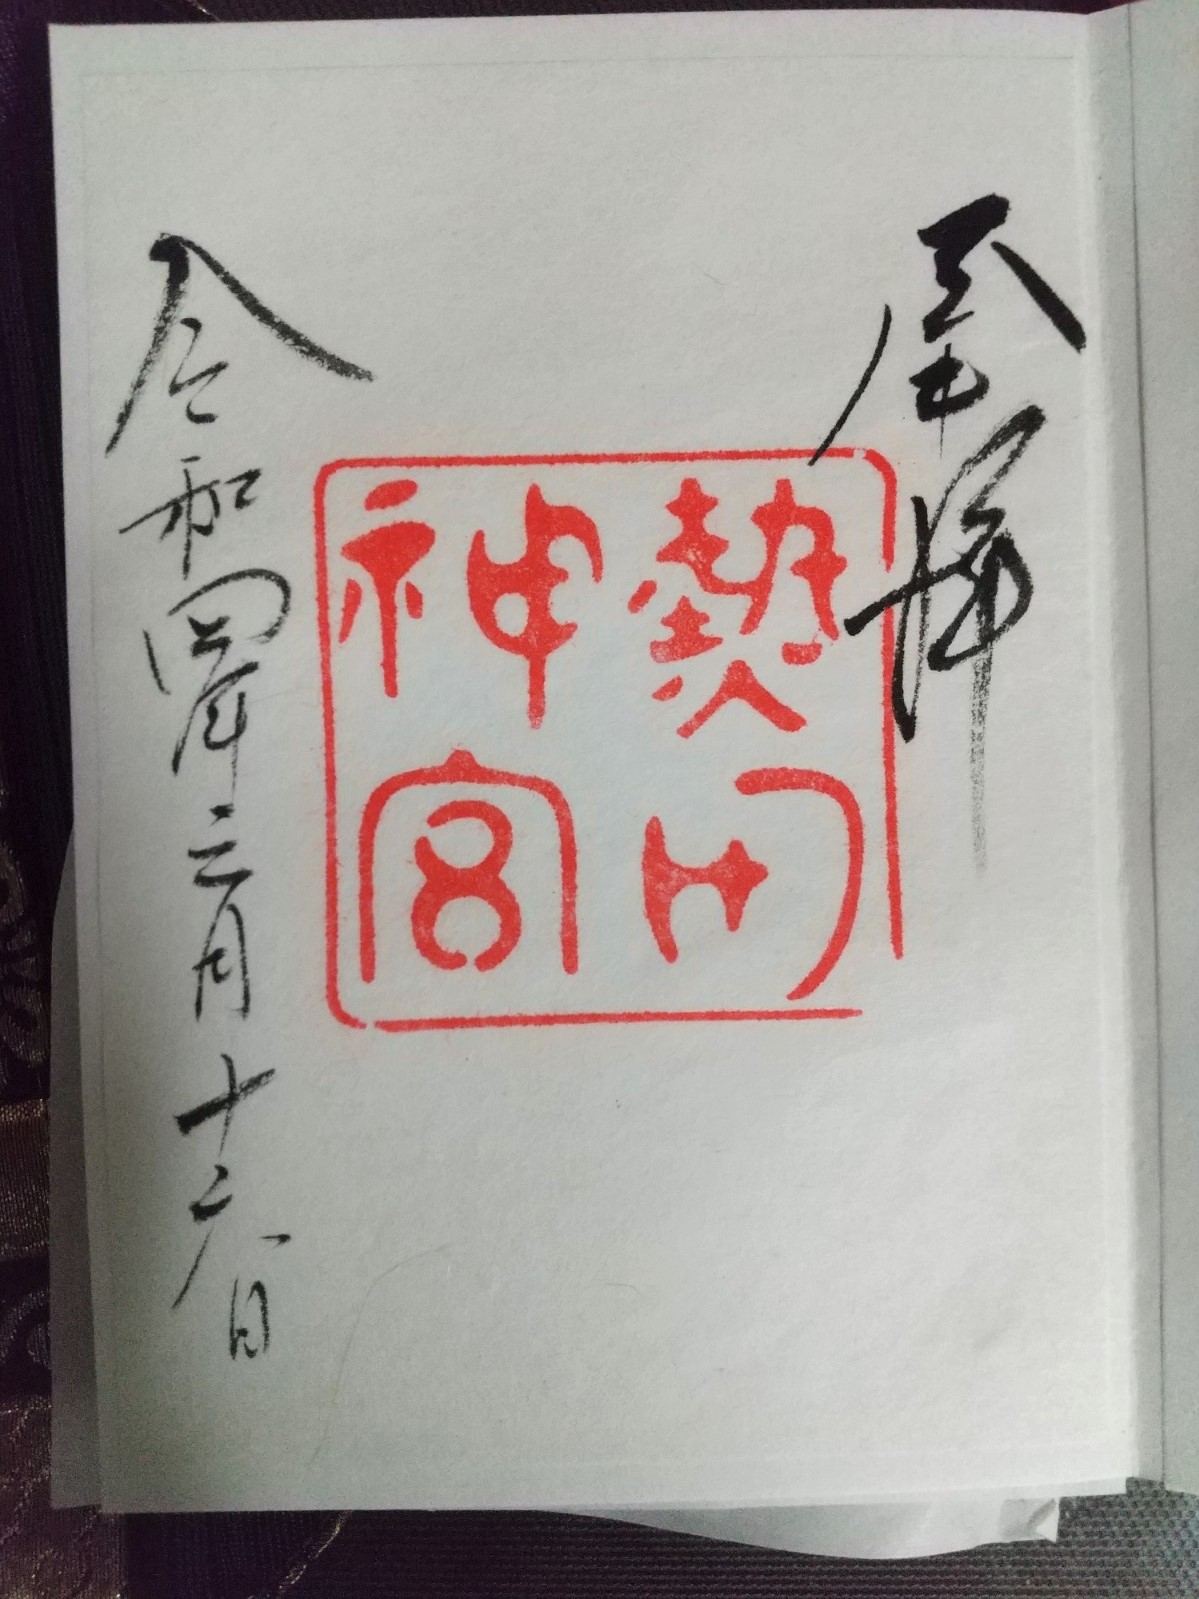 奉拝
熱田
神宮
令和四年三月十六日